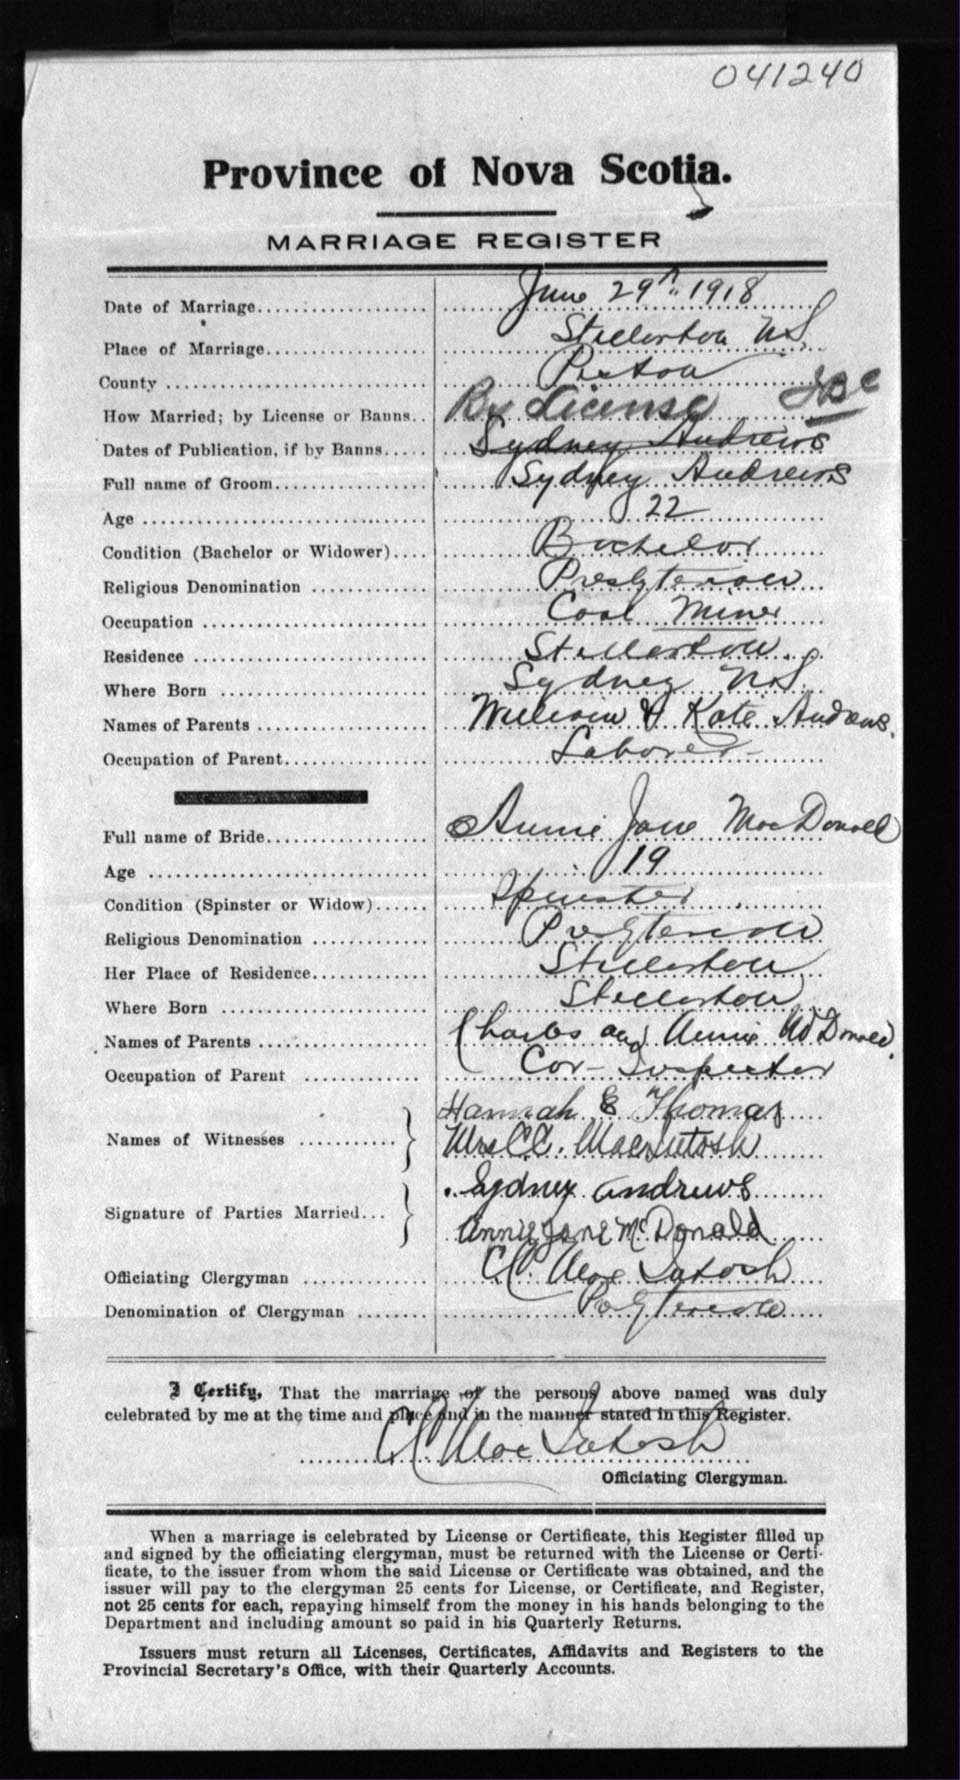 041240
Province of Nova Scotia.
MARRIAGE REGISTER
Date of Marriage........ June 29th 1918
Place of Marriage........ Stellarton N.S.
County ........ Pictou
How Married; by License or Banns.. By License JBC
Dates of Publication, if by Banns..... Sydney Andrews
Full name of Groom........ Sydney Andrews
Age ........ 22
Condition (Bachelor or Widower).... Bachelor
Religious Denomination ........ Presbyterian
Occupation ........ Coal Miner
Residence ........ Stellarton.
Where Born ........ Sydney N.S.
Names of Parents ........ William & Kate Andrews.
Occupation of Parent........ Laborer
Full name of Bride........ Annie Jane MacDonald
Age ........ 19
Condition (Spinster or Widow)...... Spinster
Religious Denomination ........ Presbyterian
Her Place of Residence........ Stellarton
Where Born ........ Stellarton
Names of Parents ........ Charles and Annie McDonald.
Occupation of Parent ........ Car-Inspector
Names of Witnesses ........ Hannah E Thomas
Mrs C.C. MacIntosh
Signature of Parties Married... Sydney Andrews
Annie Jane McDonald
Officiating Clergyman ........ C.C. MacIntosh
Denomination of Clergyman ........ Presbyterian
I Certify, That the marriage of the persons above named was duly
celebrated by me at the time and place and in the manner stated in this Register.
C.C. MacIntosh
Officiating Clergyman.
When a marriage is celebrated by License or Certificate, this Register filled up
and signed by the officiating clergyman, must be returned with the License or Certi-
ficate, to the issuer from whom the said License or Certificate was obtained, and the
issuer will pay to the clergyman 25 cents for License, or Certificate, and Register,
not 25 cents for each, repaying himself from the money in his hands belonging to the
Department and including amount so paid in his Quarterly Returns.
Issuers must return all Licenses, Certificates, Affidavits and Registers to the
Provincial Secretary's Office, with their Quarterly Accounts.